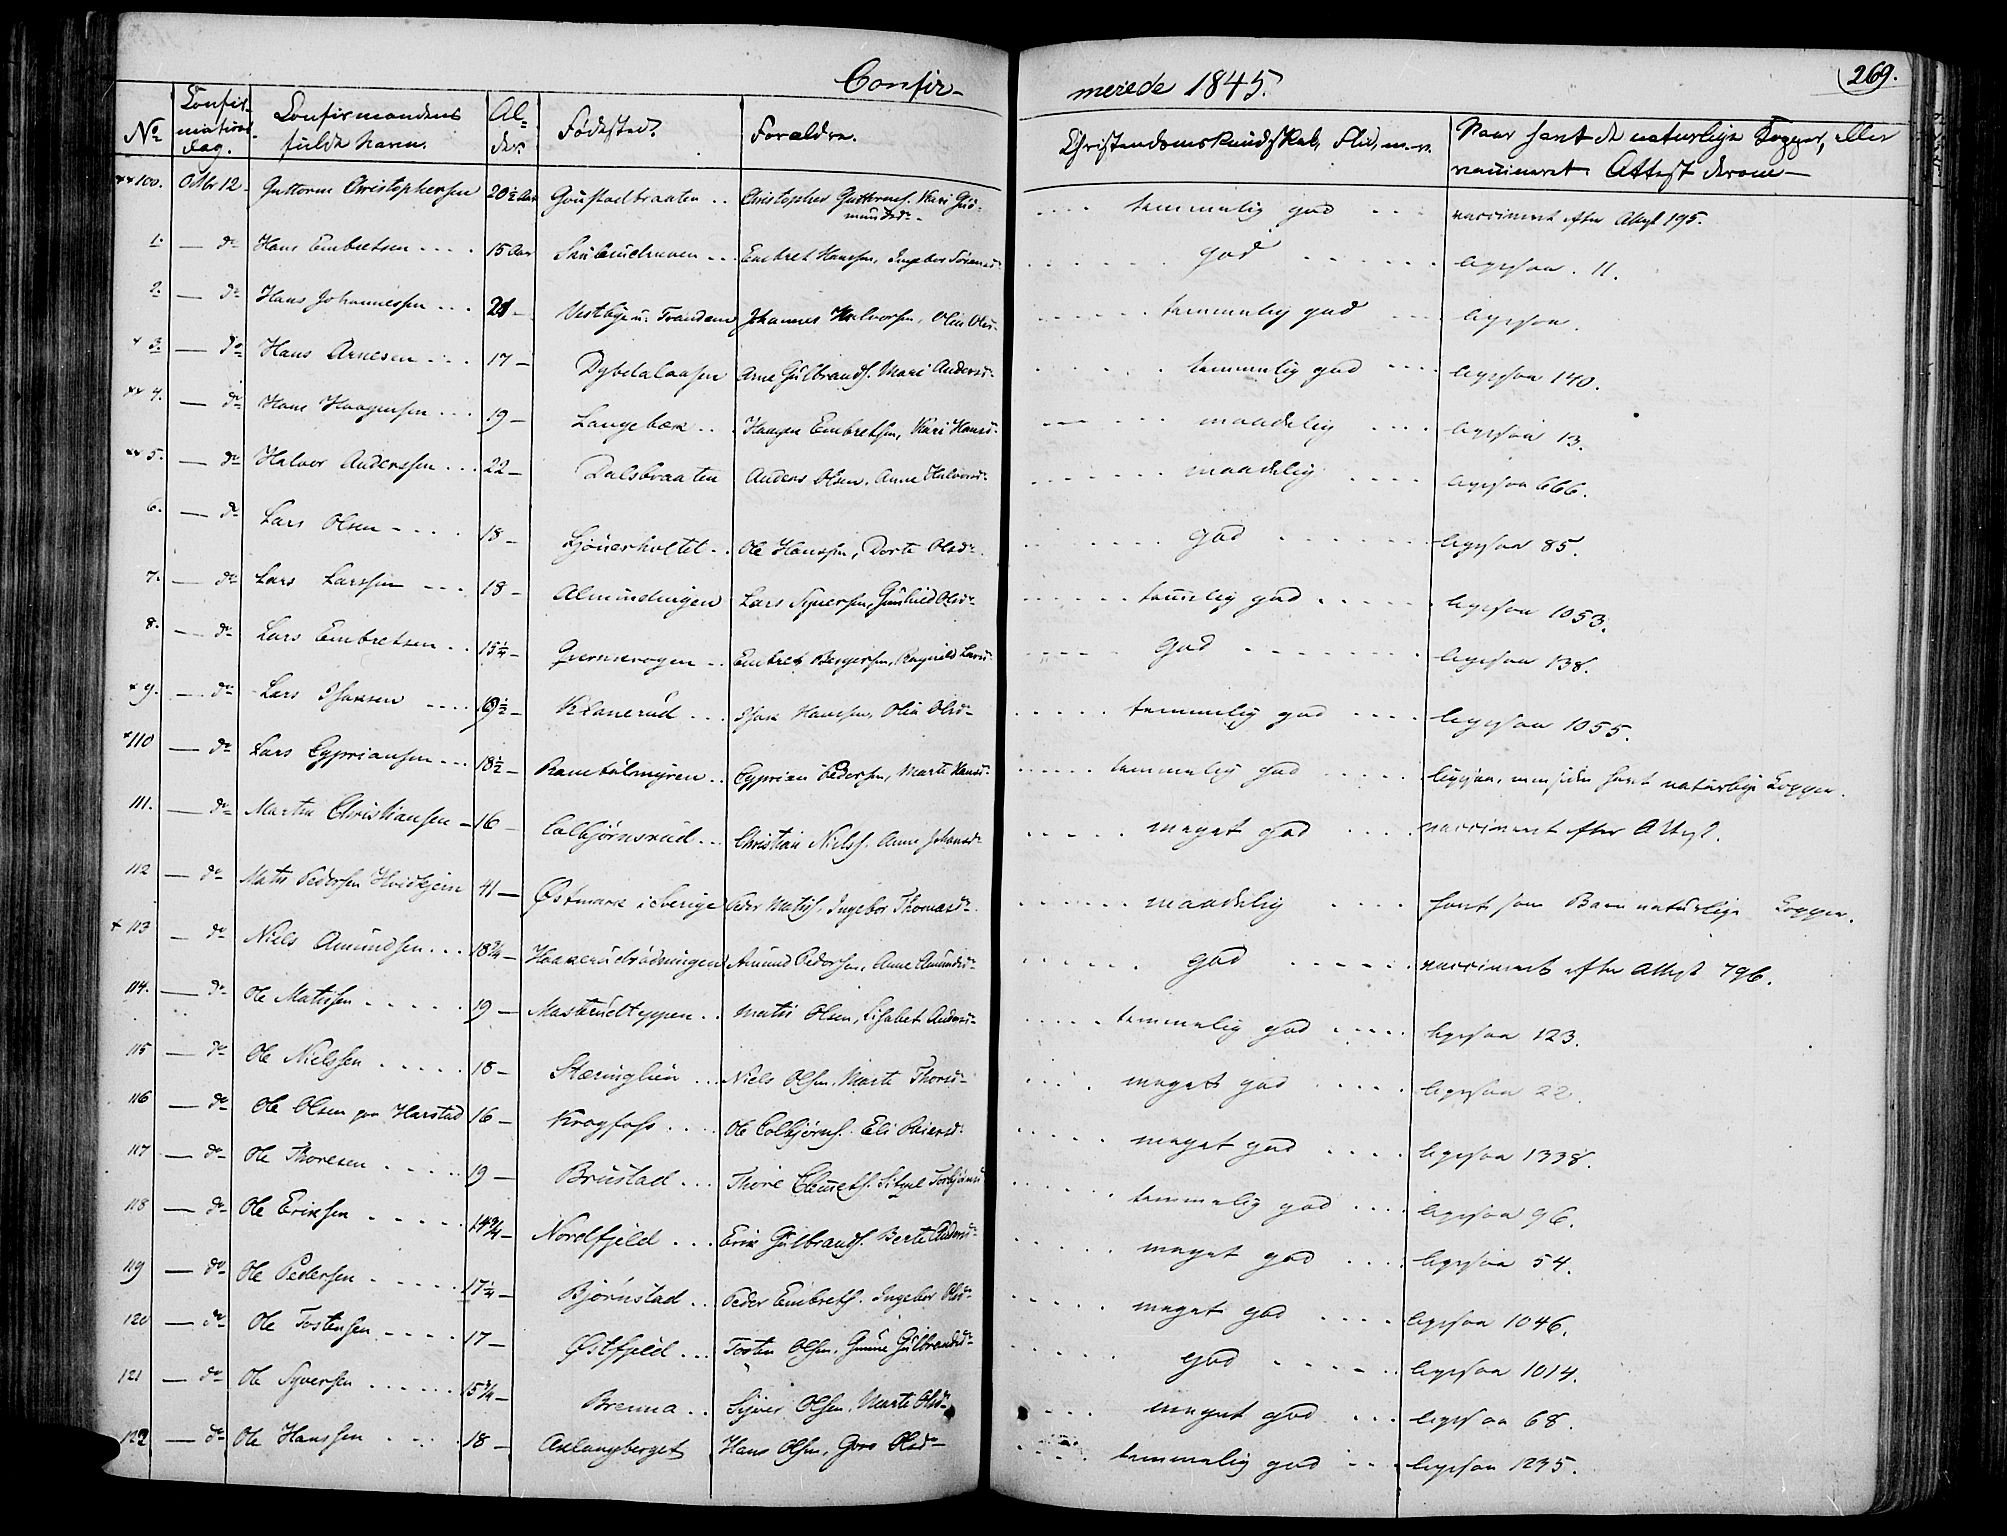 Confirmerede 1845.
269.
No Confirmations dag. Confirmandens fulde Navn. Alder Fødested. Forældre. Christendomskundskab, Flid, m.v. Naar havt de naturlige Kopper, eller vaccineret. Attest derom
xx 100. Octbr 12. Guttorm Christophersen 20½ Aar Goustadbraaten .. Christopher Guttorms. Kari Gudmundsdr .... temmelig god ... vaccineret efter Attest 195.
1. — do Hans Embretsen .... 15 Aar ... Embret Hanssen, Ingebor ...... god ...... ligesaa . 11.
2. — do Hans Johannessen ... 21 — Vestbye u. Trandem Johannes Halvorsen, Olia Olsdr ...... temmelig god ... ligesaa.
x 3. — do Hans Arnesen .... 17 — Dybdalaasen Arne Gulbrands. Mari Andersdr ...... temmelig god .... ligesaa 140.
xx 4. — do Hans Haagensen ... 19 — Langebæk ... Haagen Embretsen, Kari Hansdr ...... maadelig .... ligesaa 13.
xx 5. — do Halvor Anderssen ... 22 — Dalsbraaten Anders Olsen, Anne Halvorsdr ...... maadelig .... ligesaa 666.
6. — do Lars Olsen .... 18 — Ljønerholtet .. Ole Hanssen, Dorte Olsdr ...... god ...... ligesaa 85.
7. — do Lars Larssen .... 18 — Almindingen Lars Syversen, Gunhild Olsdr ...... temelig god ..... ligesaa 1053.
8. — do Lars Embretsen .. 15¼ — ... Embret Bergersen, Ragnild Larsdr ..... god ...... ligesaa 138.
x 9. — do Lars Isaksen .... 19½ — Klanerud ... Isak Hanssen, Olia Olsdr ..... temmelig god .... ligesaa 1055.
x 110 — do Lars Cypriansen ... 18½ — Rambølmyren .. Cyprian Pedersen, Marte Hansdr ..... temmelig god ..... ligesaa, men siden havt naturlige Kopper.
111. — do Martin Christiansen — 16 — Colbjørnsrud .. Christian Niels. Anne Johansdr ..... meget god .... vaccineret efter Attest.
112 — do Mats Pedersen Hvidkjern 41 — Østmark i Sverige Peder Mats. Ingebor Thomasdr ...... maadelig .... havt som Barn naturlige Kopper.
x 113 — do Niels Amundsen ... 18¾ — Haakerudrødningen Amund Pedersen, Anne Amundsdr ...... god ...... vaccineret efter Attest 796.
114. — do Ole Matissen ..... 19 — Mastrudteppen .. Matis Olsen, Lisabet Andersdr ..... temmelig god ..... ligesaa 123.
115 — do Ole Nielssen ..... 18 — Stæringlien ... Niels Olsen, Marte Thorsdr .... meget god .... ligesaa 22.
116 — do Ole Olsen paa Harstad 16 — Krogfoss .... Ole Colbjørns. Eli ... ..... meget god .... ligesaa 1338.
117 — do Ole Thoresen ..... 19 — Brustad ... Thore Clemets. Sidsel Torbjørnsd ...... temmelig god .... ligesaa 96.
118 — do Ole Eriksen ..... 14¾ — Nordfjeld ... Erik Gulbrands. Berte Andersdr ..... meget god .... ligesaa 54.
119 — do Ole Pedersen ..... 17¼ — Bjørnstad .. Peder Embrets. Ingebor Olsdr ..... meget god .... ligesaa 1046.
120 — do Ole Tostensen .... 17 — Østfjeld ... Tosten Olsen. Gunne Gulbrandsdr ..... god ..... ligesaa 1014.
121 — do Ole Syversen ...... 15¾ — Brenna .. Syver Olsen, Marte Olsdr .... meget god ... ligesaa 68.
122 — do Ole Hanssen .... 18 — Aslangberget Hans Olsen, Goro Olsdr .... temmelig god ... ligesaa 1295.